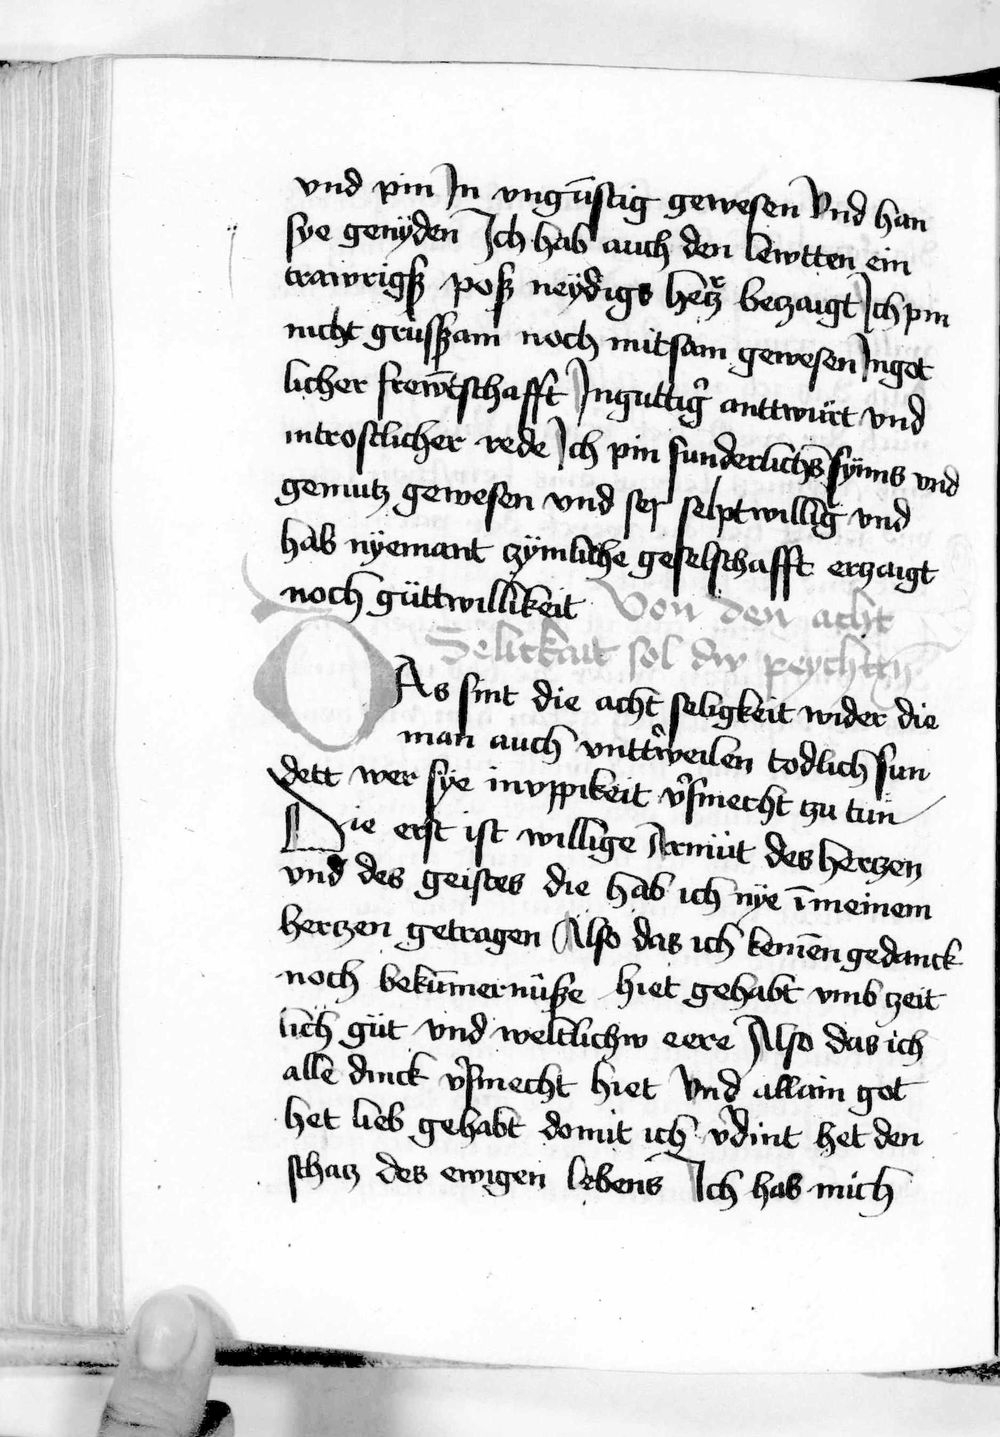 vnd pin In vngūstig gewesen Vnd han
sye genÿden Ich hab auch den lewtten ein
trawrigß poß neÿdigs hertz betzaigt Ich pin
nicht grüßsam noch mitsam gewesen Inget
licher frewtschafft In guttig̃ anttwürt vnd
introstlicher rede Ich pin sunderlichs sÿnns vnd
gemutz gewesen vnd ser selptwillig vnd
hab nÿemant zÿmliche geselschafft ertzaigt
noch güttwillikeit Von den acht
Selickait sol dw peychttñ
DAs sint die acht seligkeit wider die
man auch vntt̃weilen todlich sun
dett wer sye in vppikeit v̾smecht tzu tün
Die erst ist willige Armüt des hertzen
vnd des geistes die hab ich nÿe ī meinem
hertzen getragen Also das ich keinēn gedanck
noch bekūmernüße hiet gehabt vmb tzeit
lich güt vnd weltlichw eere Also das ich
alle dinck v̾smecht hiet Vnd allain got
het lieb gehabt domit ich v̾dint het den
schatz des ewigen lebens Ich hab mich